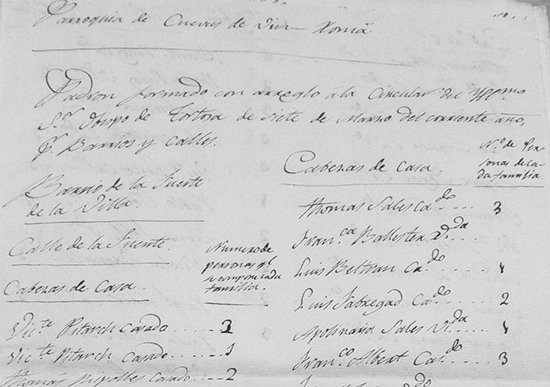 Parroquia de Cueves de Vin Romá
Padron formado con arreglo ala Circular del Yllmo
Sr. Obispo de Tortosa de siete de Marzo del corriente año,
pr. Barrios y calles.
Barrio de la Fuente
de la Villa
Calle de la Fuente
Cabezas de Casa
Numero de
personas qe.
se compone cada
familia.
Victe Pitarch Casado ..... 3
Victe Pitarch Casado ..... 3
Thomás Ripolles Casado .... 2
Cabezas de Casa
No. de Per
sonas de ca
da familia
Thomás Sales Cado ..... 3
Franca Ballester Vda
Luis Beltran Cado .... 1
Luis Sabregad Cado .... 2
Apolinario Sales Vda .... 1
Franco Albert Cado .... 3